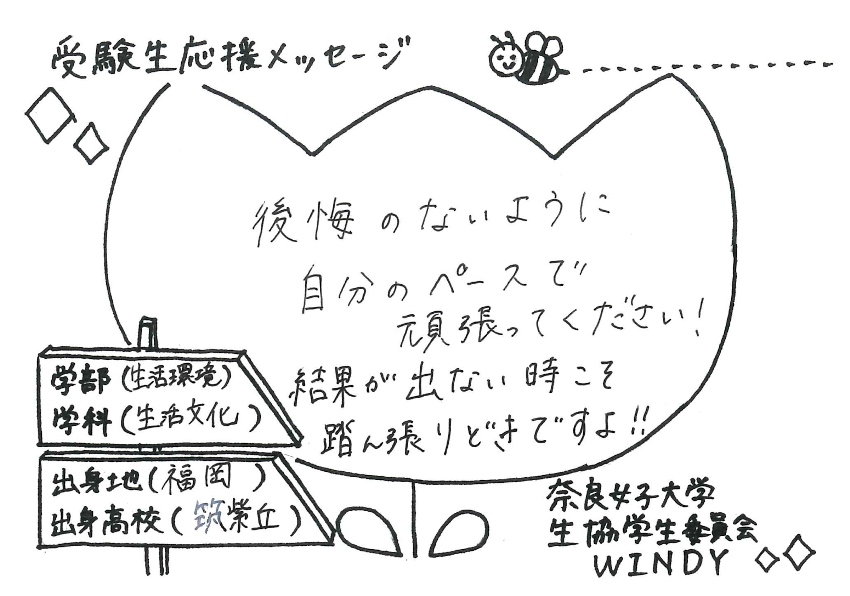 受験生応援メッセージ
後悔のないように
自分のペースで
頑張ってください!
結果が出ない時こそ
踏ん張りどきですよ!!
学部(生活環境)
学科(生活文化)
出身地(福岡)
出身高校(筑紫丘)
奈良女子大学
生協学生委員会
WINDY